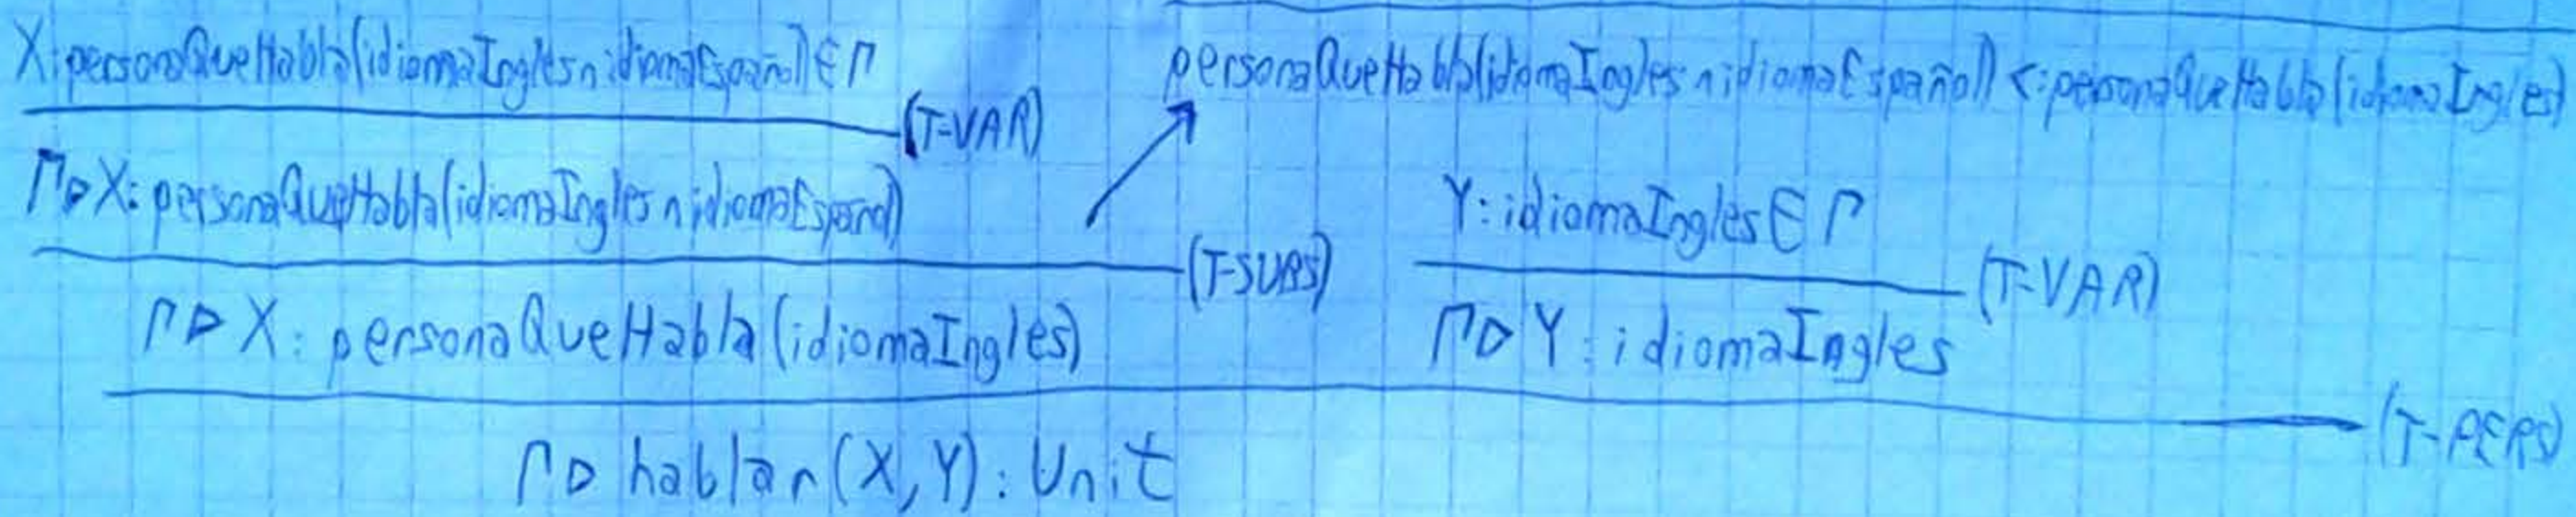 X:personaQueHabla(idiomaIngles∩idiomaEspañol)∈Γ
personaQueHabla(idiomaIngles∩idiomaEspañol) <:personaQueHabla(idiomaIngles)
(T-VAR)
Γ▷X: personaQueHabla(idiomaIngles∩idiomaEspañol)
Y:idiomaIngles∈Γ
(T-SUBS)
(T-VAR)
Γ▷X: personaQueHabla(idiomaIngles)
Γ▷Y: idiomaIngles
(T-PERS)
Γ▷hablar(X,Y):Unit